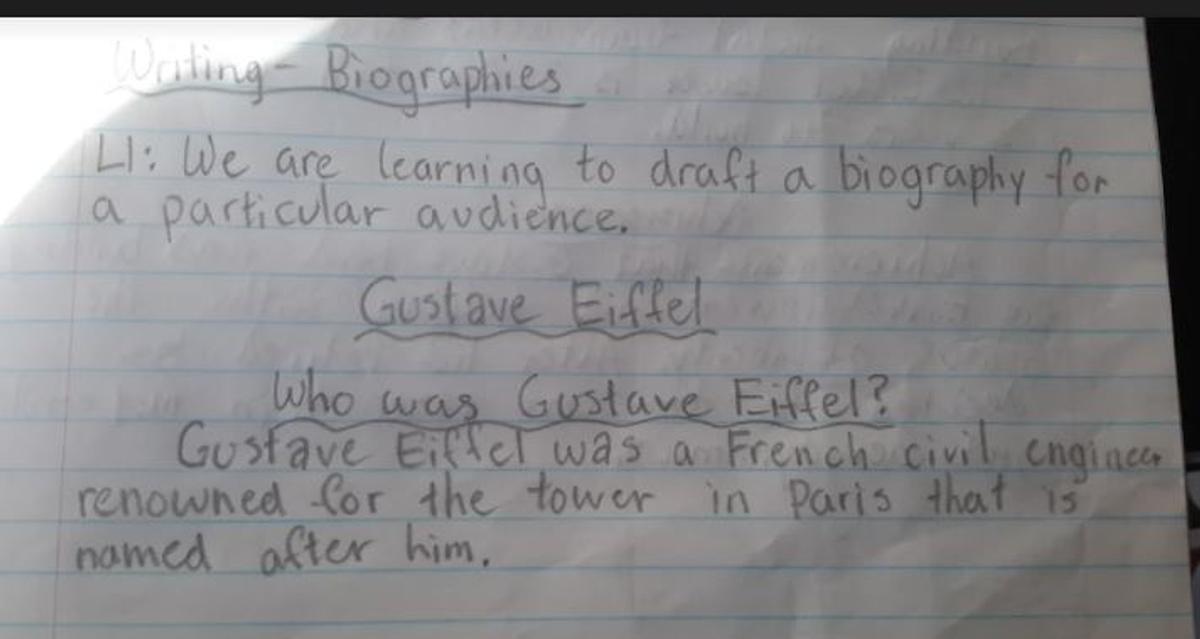 Writing - Biographies
LI: We are learning to draft a biography for
a particular audience.
Gustave Eiffel
Who was Gustave Eiffel?
Gustave Eiffel was a French civil engineer
renowned for the tower in Paris that is
named after him.